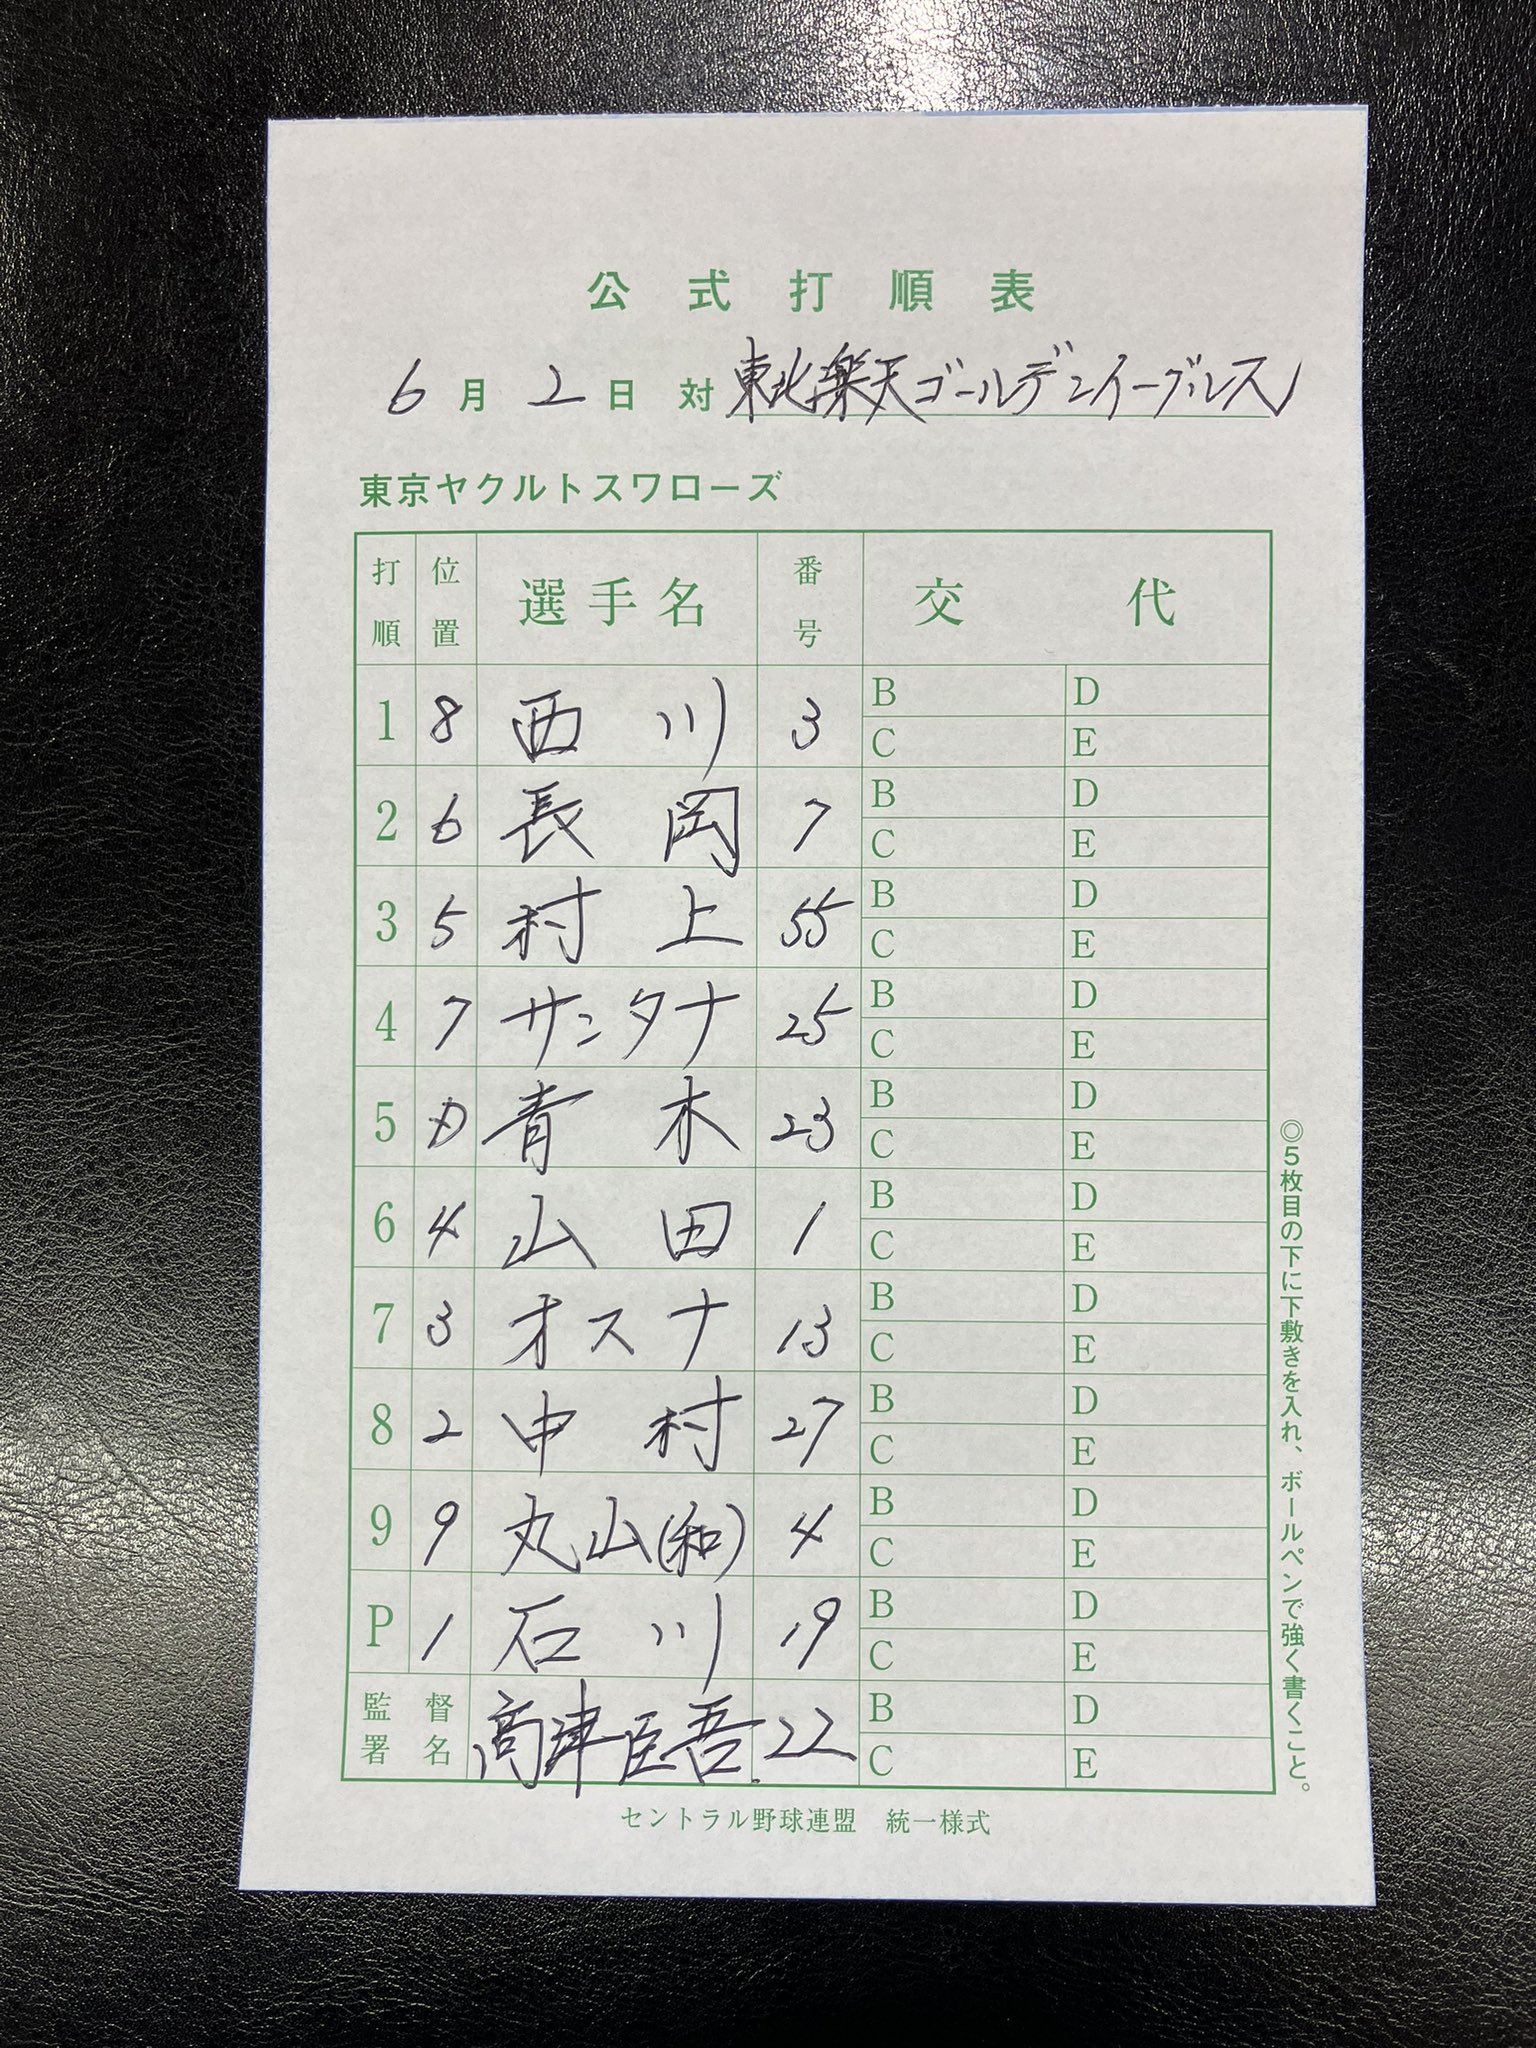 公式打順表
6月2日 対 東北楽天ゴールデンイーグルス
東京ヤクルトスワローズ
打順 位置 選手名 番号 交代
1 8 西川 3 B D
C E
2 6 長岡 7 B D
C E
3 5 村上 55 B D
C E
4 7 サンタナ 25 B D
C E
5 D 青木 23 B D
C E
6 4 山田 1 B D
C E
7 3 オスナ 13 B D
C E
8 2 中村 27 B D
C E
9 9 丸山(和) 4 B D
C E
P 1 石川 19 B D
C E
監督署名 高津臣吾 22 B D
C E
セントラル野球連盟 統一様式
◎5枚目の下に下敷きを入れ、ボールペンで強く書くこと。